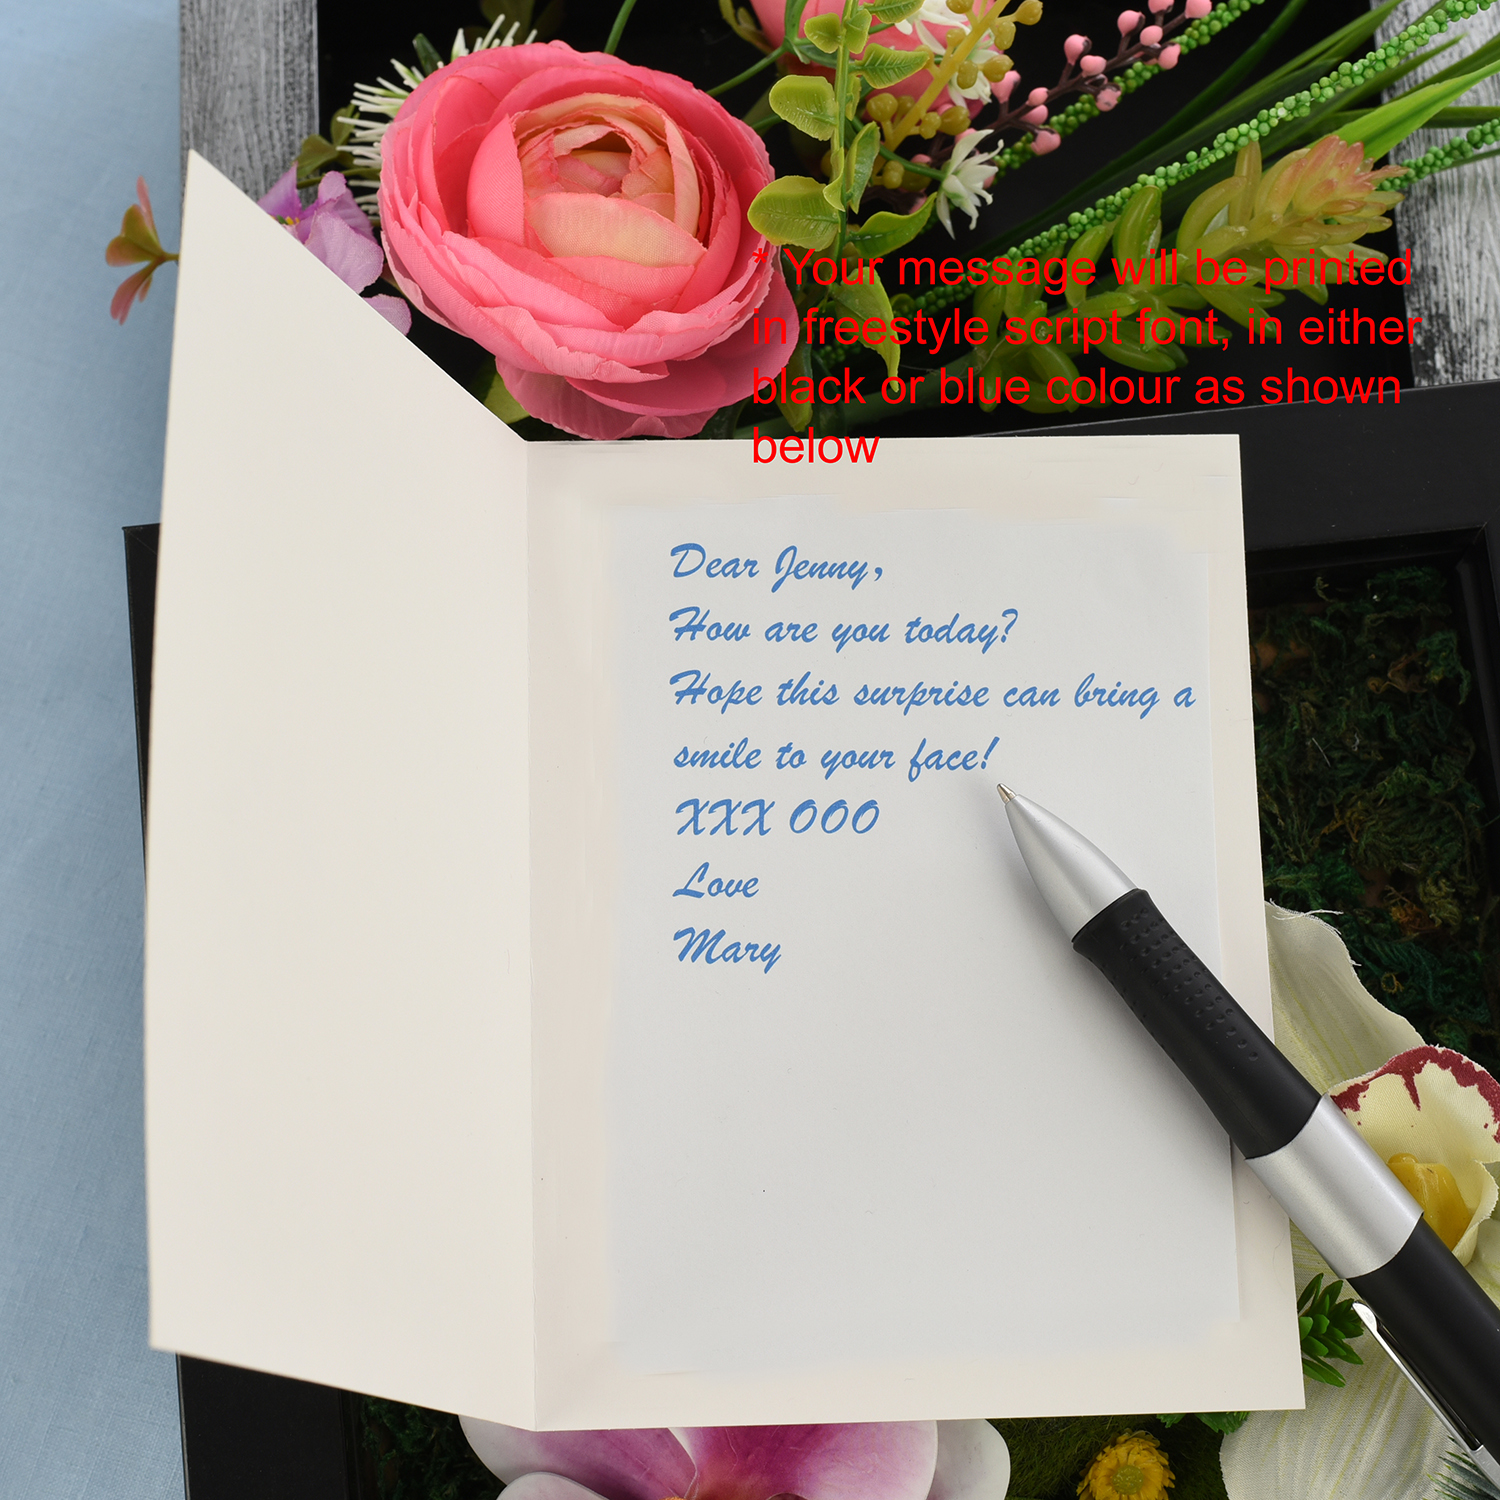 * Your message will be printed
in freestyle script font, in either
black or blue colour as shown
below
Dear Jenny,
How are you today?
Hope this surprise can bring a
smile to your face!
XXX OOO
Love
Mary